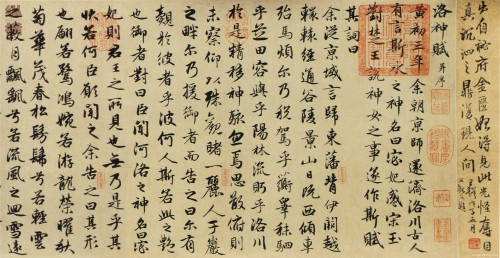 洛神賦 并序
黃初三年余朝京師還濟洛川古人
有言斯水之神名曰宓妃感宋玉
對楚王說神女之事遂作斯賦
其詞曰
余從京域言歸東藩背伊闕越
轘轅經通谷陵景山日既西傾車
殆馬煩尔乃稅駕乎蘅皋秣駟
乎芝田容與乎陽林流眄乎洛川
於是精移神駭焉思散俯則
未察仰以殊觀睹一麗人于巖
之畔尔乃援御者而告之曰尔有
覿於彼者乎彼何人斯若此之艷
也御者對曰臣聞河洛之神名曰宓
妃則君王之所見也無乃是乎其
狀若何臣願聞之余告之曰其形
也翩若驚鴻婉若游龍榮曜秋
菊華茂春松髣髴兮若輕雲
之蔽月飄飖兮若流風之迴雪遠